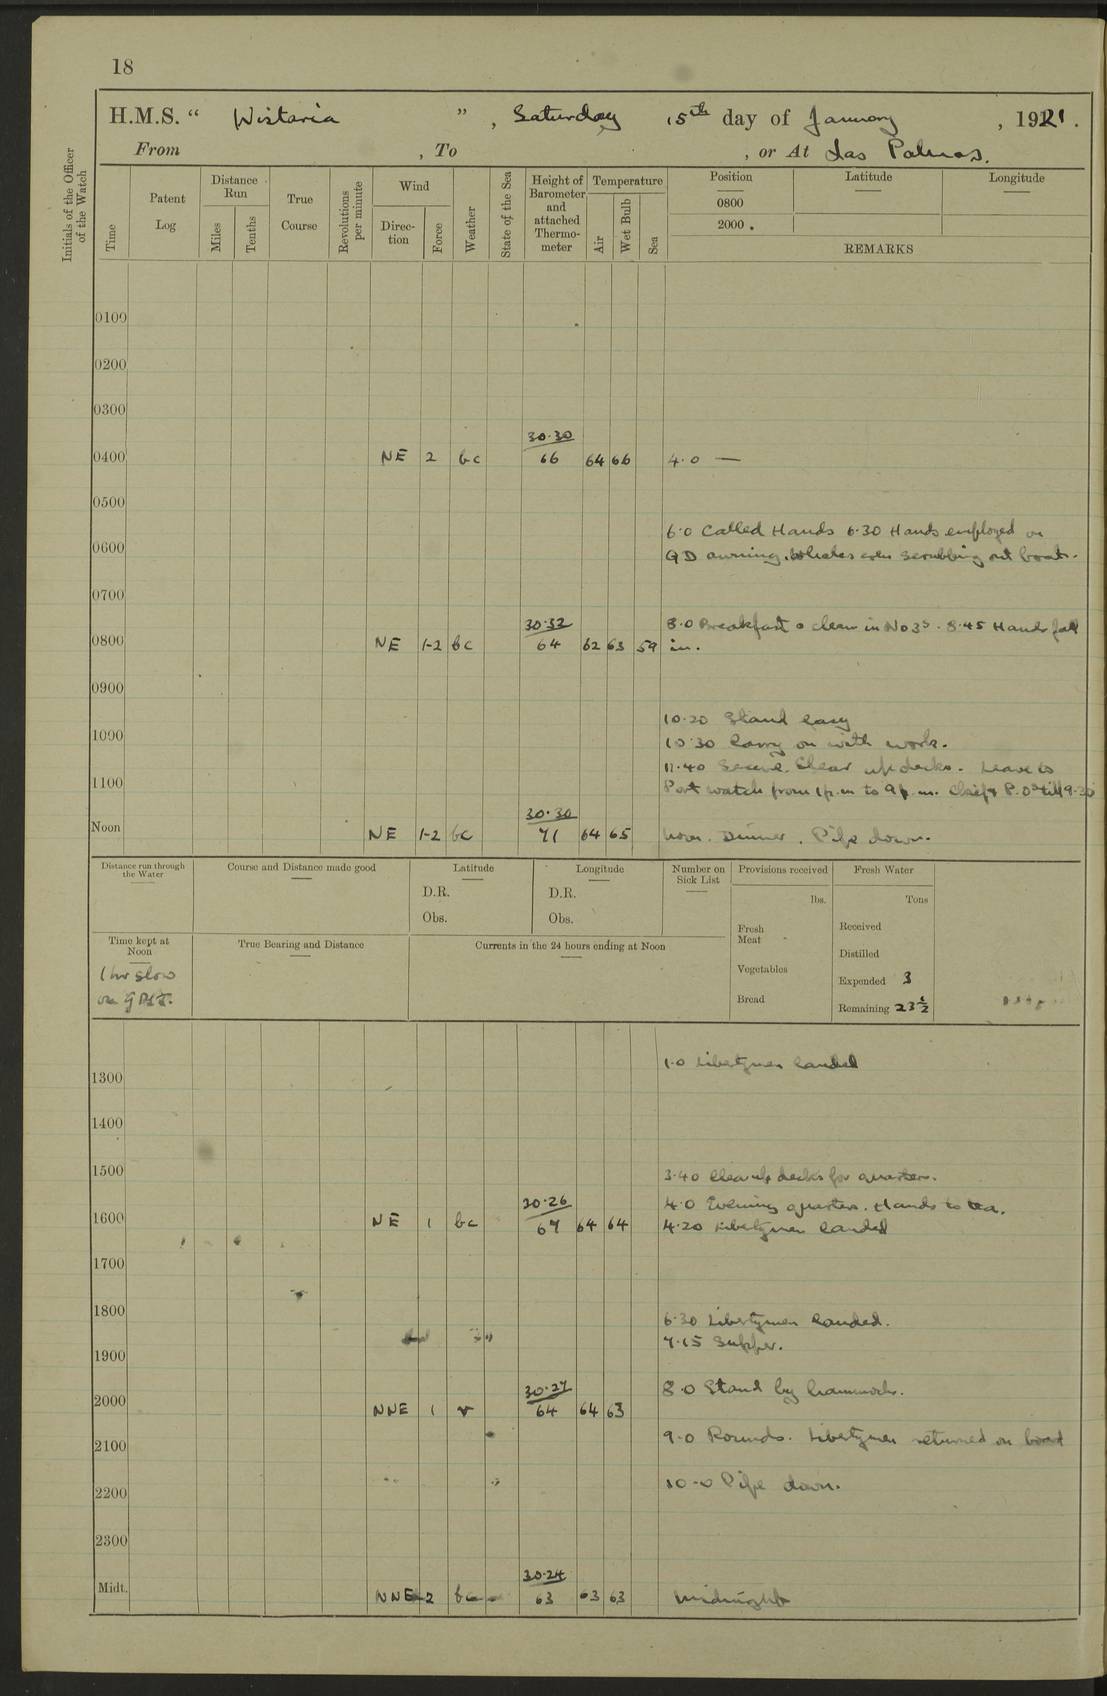 18
H.M.S. “ Wistaria ” , Saturday 15th day of January , 1921.
From , To , or At Las Palmas.
Initials of the Officer of the Watch
Time
Patent Log
Distance Run
Miles
Tenths
True Course
Revolutions per minute
Wind
Direc-tion
Force
Weather
State of the Sea
Height of Barometer and attached Thermo-meter
Temperature
Air
Wet Bulb
Sea
Position
Latitude
Longitude
0800
2000 .
REMARKS
0100
0200
0300
30.30
0400 NE 2 bc 66 64 66 4.0 —
0500
6.0 Called Hands 6.30 Hands employed on
0600 QD awning. scrubbing out boats.
0700
30.32 8.0 Breakfast & clean in No 3s. 8.45 Hands fall
0800 NE 1-2 bc 64 62 63 59 in.
0900
10.20 Stand easy
1000 10.30 Carry on with work.
11.40 Secure. Clear up decks. Leave to
1100 Port watch from 1 p.m to 9 p.m. Chief & P.Os till 9.30
30.30
Noon NE 1-2 bc 71 64 65 Noon. Dinner. Pipe down.
Distance run through the Water
Course and Distance made good
Latitude
D.R.
Obs.
Longitude
D.R.
Obs.
Number on Sick List
Provisions received
lbs.
Fresh Meat
Vegetables
Bread
Fresh Water
Tons
Received
Distilled
Expended 3
Remaining 23½
Time kept at Noon
1 hr slow
on GMT.
True Bearing and Distance
Currents in the 24 hours ending at Noon
1.0 Libertymen landed
1300
1400
1500 3.40 Clear up decks for quarters.
30.26 4.0 Evening quarters. Hands to tea.
1600 NE 1 bc 67 64 64 4.20 Libertymen landed
1700
1800 6.30 Libertymen landed.
7.15 Supper.
1900
30.27 8.0 Stand by hammocks.
2000 NNE 1 r 64 64 63
2100 9.0 Rounds. Libertymen returned on board
2200 10-0 Pipe down.
2300
30.24
Midt. NNE 2 bc 63 63 63 Midnight